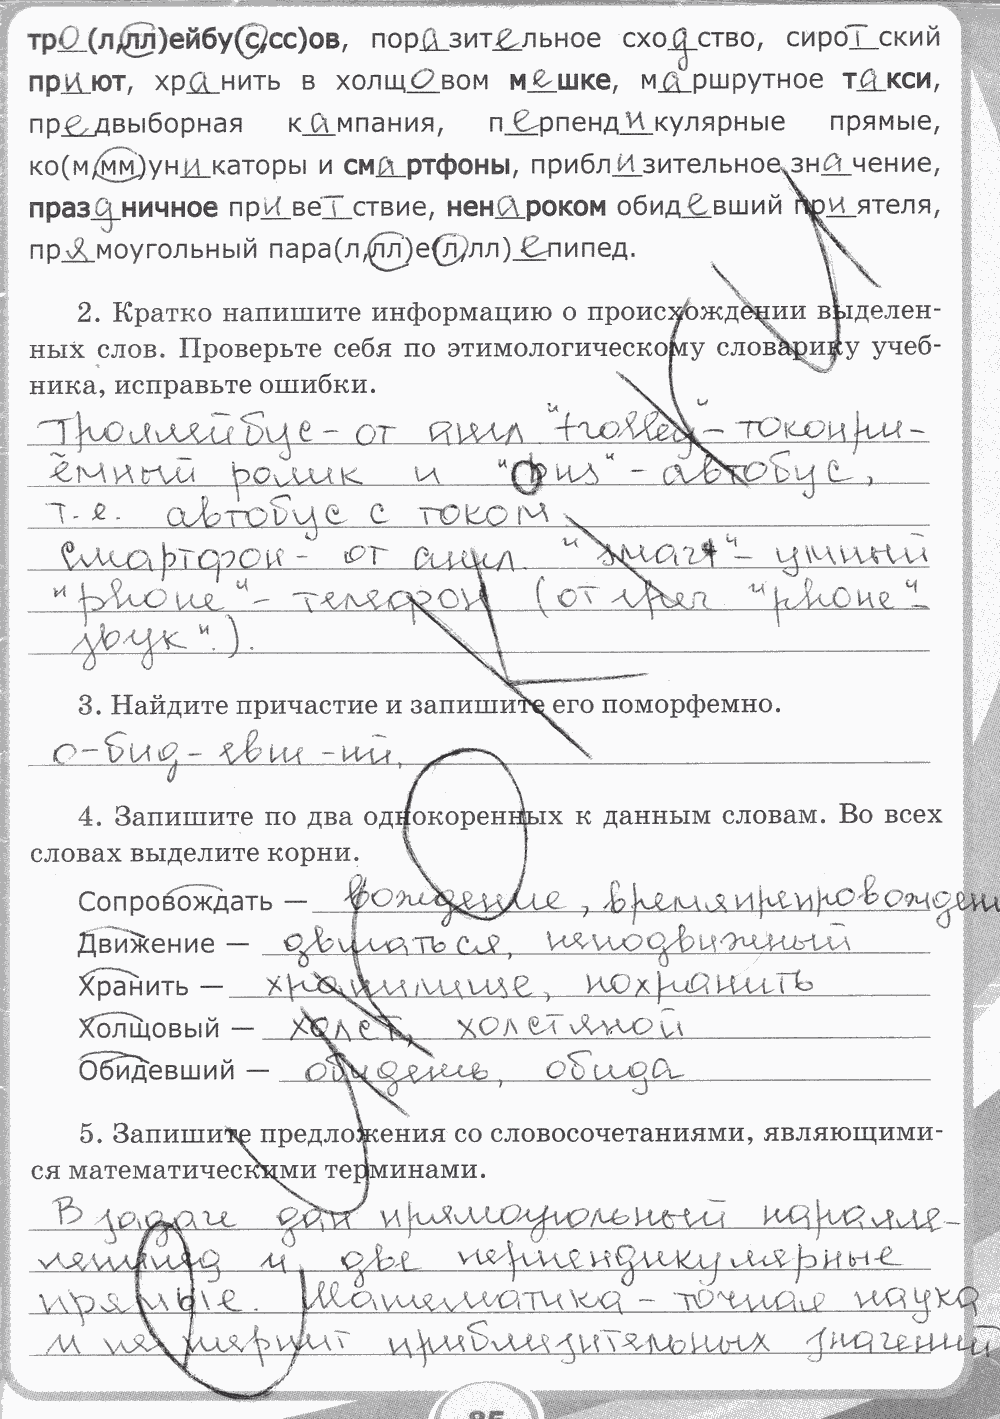 тро(л,лл)ейбу(с,сс)ов, поразительное сходство, сиротский
приют, хранить в холщовом мешке, маршрутное такси,
предвыборная кампания, перпендикулярные прямые,
ко(м,мм)уникаторы и смартфоны, приблизительное значение,
праздничное приветствие, ненароком обидевший приятеля,
прямоугольный пара(л,лл)е(л,лл)епипед.
2. Кратко напишите информацию о происхождении выделен-
ных слов. Проверьте себя по этимологическому словарику учеб-
ника, исправьте ошибки.
Троллейбус - от англ "trolley" - токопри-
ёмный ролик и - автобус,
т.е. автобус с током
Смартфон - от англ. "smart" - умный
"phone" - телефон (от греч "phone" -
звук".).
3. Найдите причастие и запишите его поморфемно.
о-бид-евш-ий.
4. Запишите по два однокоренных к данным словам. Во всех
словах выделите корни.
Сопровождать — вождение, времяпрепровожден
Движение — двигаться, неподвижный
Хранить — хранилище, похранить
Холщовый — холст, холстяной
Обидевший — обидеть, обида
5. Запишите предложения со словосочетаниями, являющими-
ся математическими терминами.
В задаче дан прямоугольный паралле-
лепипед и две перпендикулярные
прямые. Математика - точная наука
и не терпит приблизительных значений
85